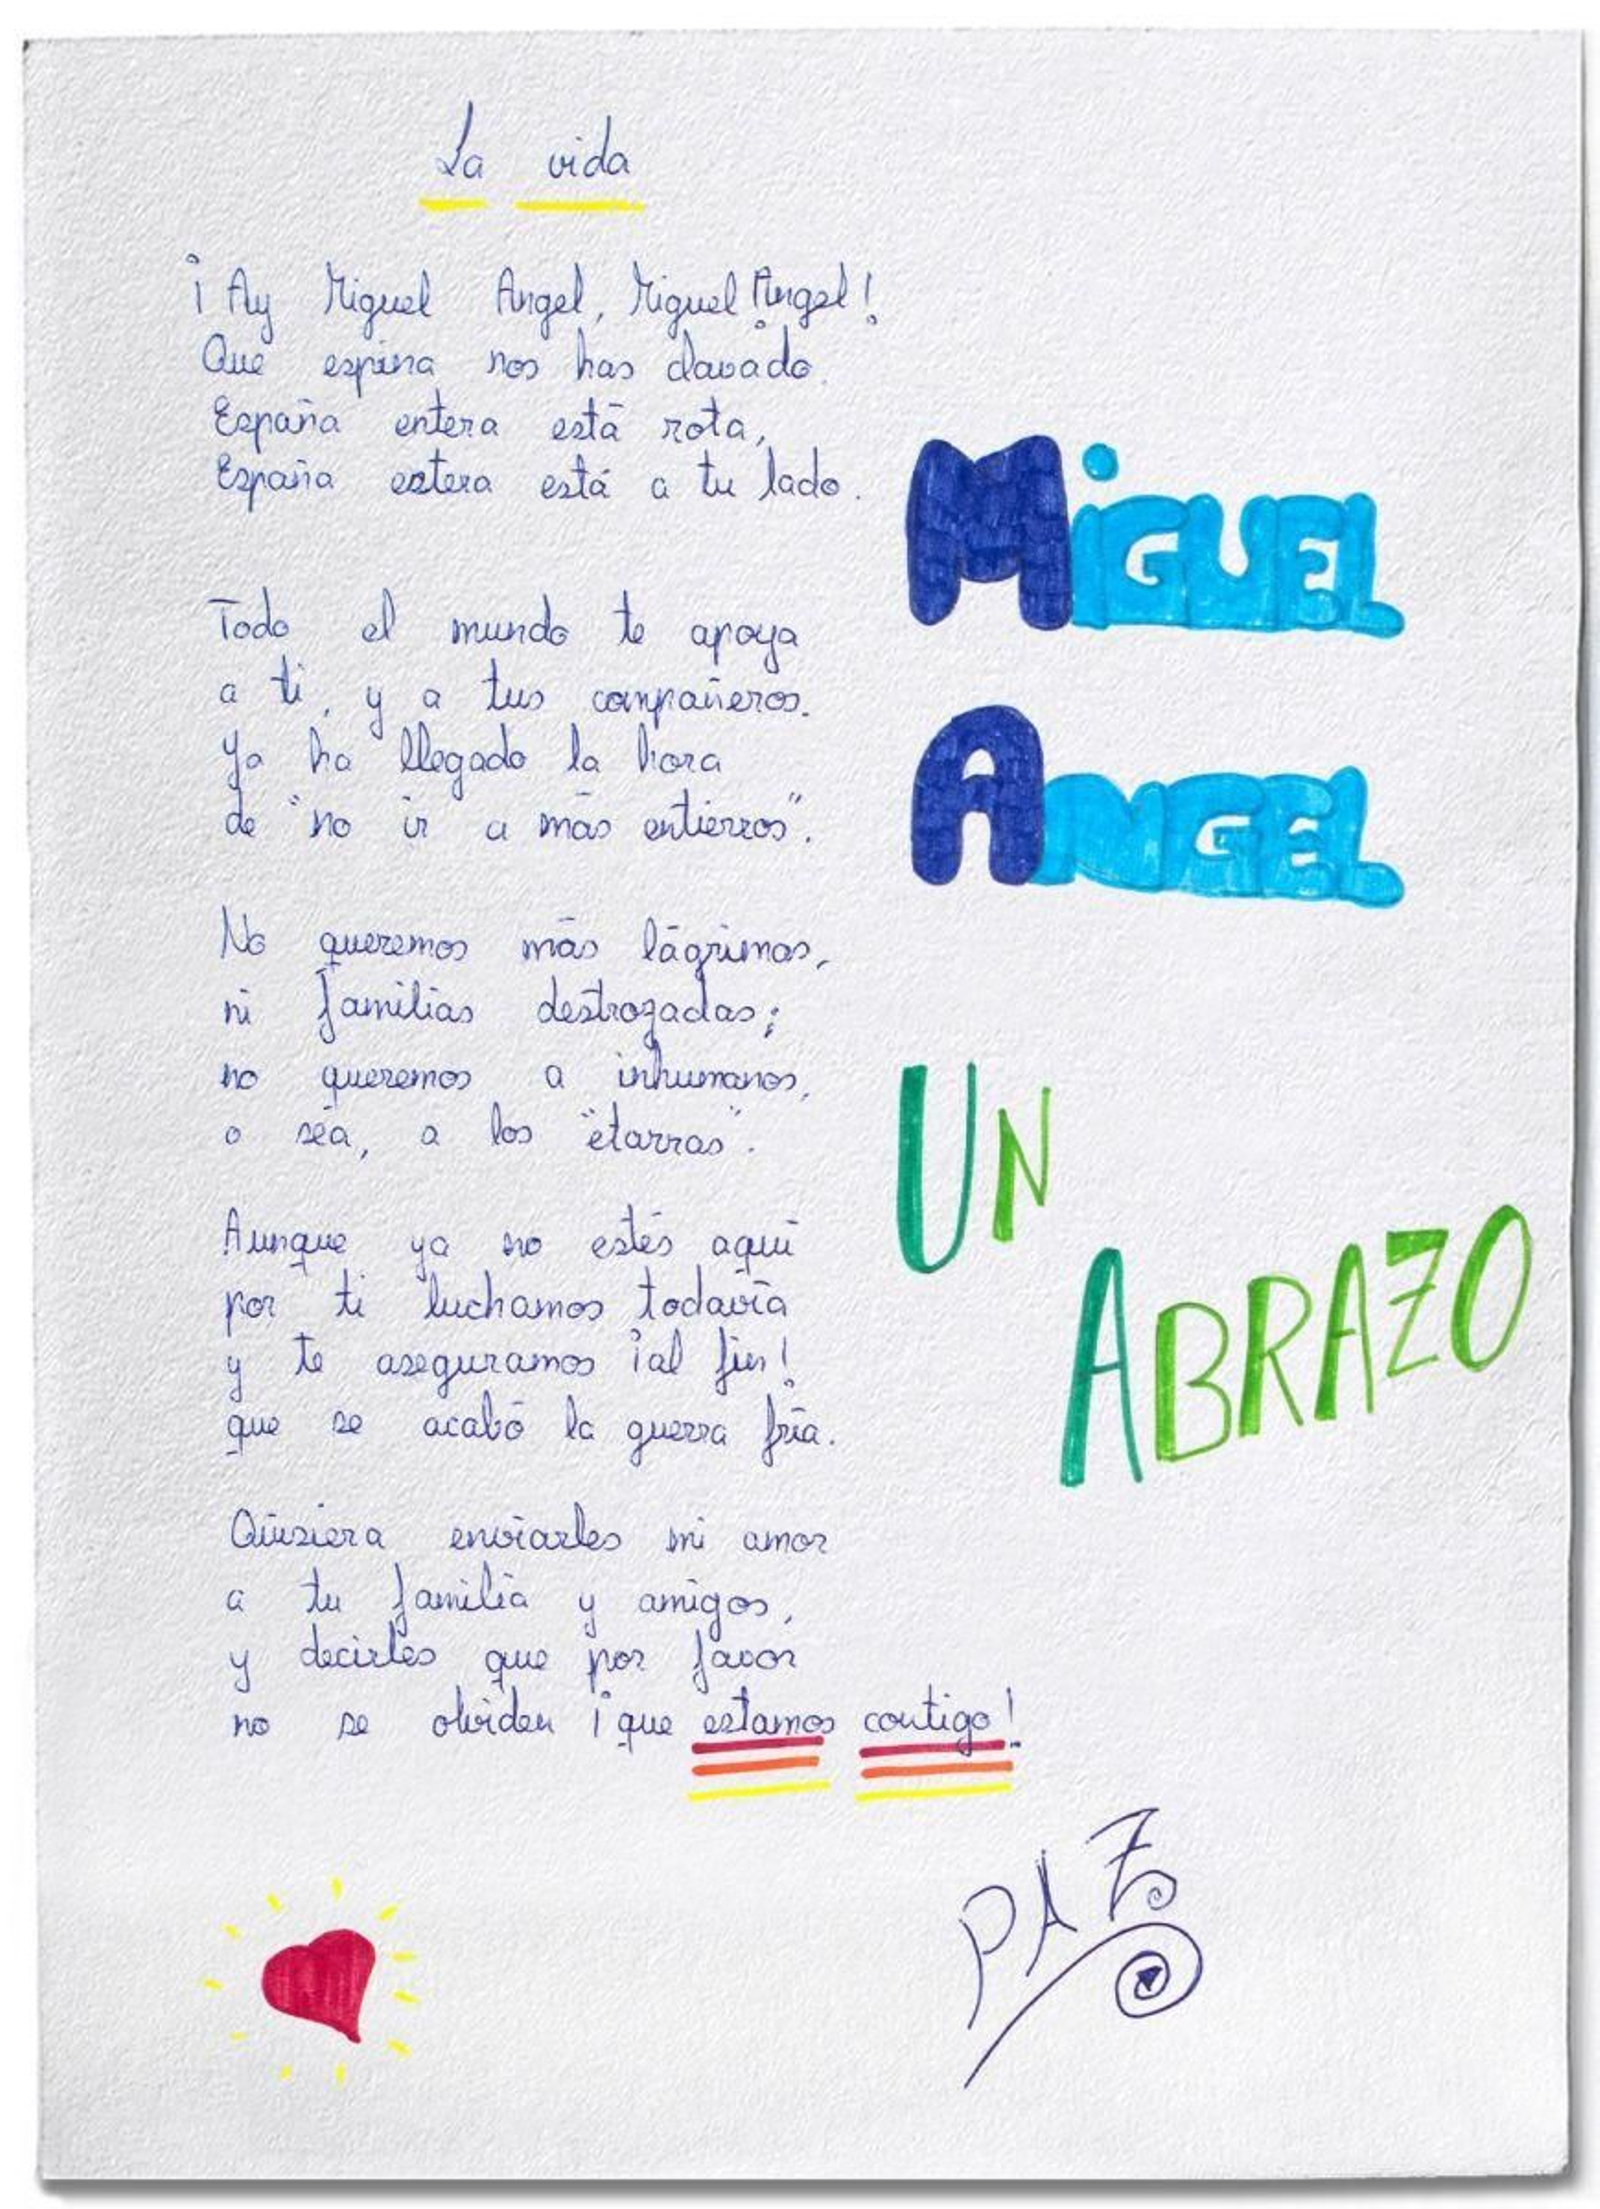 La vida
¡Ay Miguel Angel, Miguel Angel!
Que espina nos has clavado.
España entera está rota,
España entera está a tu lado.
Todo el mundo te apoya
a ti, y a tus compañeros.
Ya ha llegado la hora
de "no ir a más entierros".
No queremos más lágrimas,
ni familias destrozadas;
no queremos a inhumanos,
o séa, a los "etarras".
Aunque ya no estés aquí
por ti luchamos todavía
y te aseguramos ¡al fin!
que se acabó la guerra fría.
Quisiera enviarles mi amor
a tu familia y amigos,
y decirles que por favor
no se olviden ¡que estamos contigo!
MiGUEL
ANGEL
UN
ABRAZO
PAZ